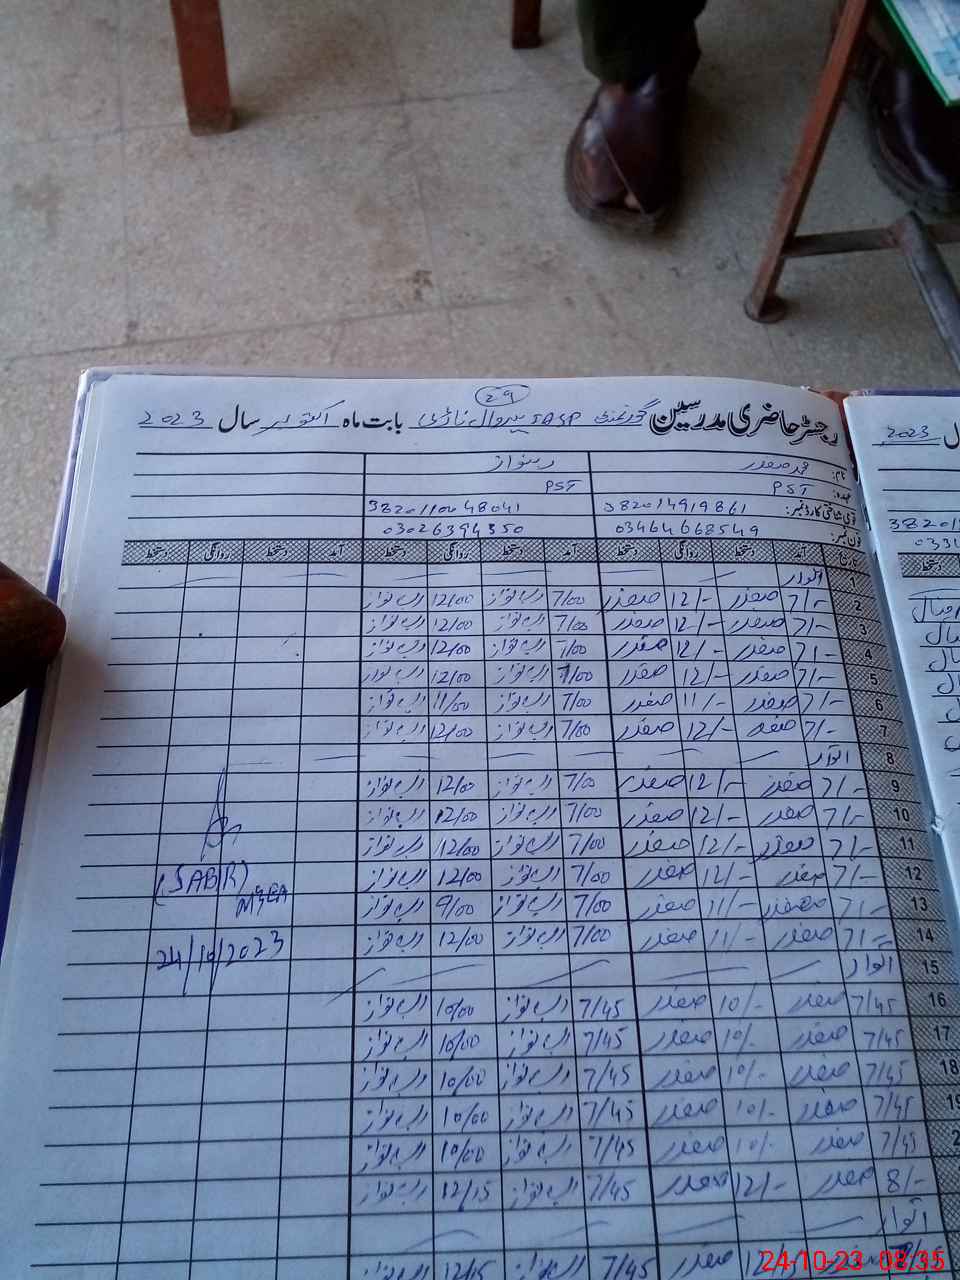 29
رجسٹر حاضری مدرسین گورنمنٹ بابت ماہ اکتوبر سال 2023
نام: محمد صفدر رب نواز
عہدہ: PST PST
قومی شناختی کارڈ نمبر: 382014919861 3820110048041
فون نمبر: 03464668549 03026394350
تاریخ آمد دستخط روانگی دستخط آمد دستخط روانگی دستخط آمد دستخط روانگی دستخط
1 اتوار
2 7/- صفدر 12/- صفدر 7/00 رب نواز 12/00 رب نواز
3 7/- صفدر 12/- صفدر 7/00 رب نواز 12/00 رب نواز
4 7/- صفدر 12/- صفدر 7/00 رب نواز 12/00 رب نواز
5 7/- صفدر 12/- صفدر 7/00 رب نواز 12/00 رب نواز
6 7/- صفدر 11/- صفدر 7/00 رب نواز 11/00 رب نواز
7 7/- صفدر 12/- صفدر 7/00 رب نواز 12/00 رب نواز
8 اتوار
9 7/- صفدر 12/- صفدر 7/00 رب نواز 12/00 رب نواز
10 7/- صفدر 12/- صفدر 7/00 رب نواز 12/00 رب نواز
11 7/- صفدر 12/- صفدر 7/00 رب نواز 12/00 رب نواز
12 7/- صفدر 12/- صفدر 7/00 رب نواز 12/00 رب نواز
13 7/- صفدر 11/- صفدر 7/00 رب نواز 9/00 رب نواز
14 7/- صفدر 11/- صفدر 7/00 رب نواز 12/00 رب نواز
15 اتوار
16 7/45 صفدر 10/- صفدر 7/45 رب نواز 10/00 رب نواز
17 7/45 صفدر 10/- صفدر 7/45 رب نواز 10/00 رب نواز
18 7/45 صفدر 10/- صفدر 7/45 رب نواز 10/00 رب نواز
19 7/45 صفدر 10/- صفدر 7/45 رب نواز 10/00 رب نواز
2 7/45 صفدر 10/- صفدر 7/45 رب نواز 10/00 رب نواز
8/- صفدر 12/- صفدر 7/45 رب نواز 12/15 رب نواز
اتوار
صفدر 12/- صفدر 7/45 رب نواز 12/15 رب نواز
(SABIR)
MGEA
24/10/2023
2023
24-10-23 08:35